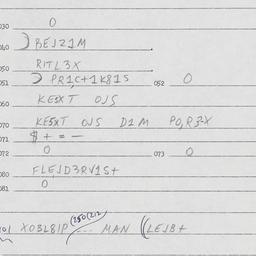 030 0
040 ) BEJZ1M
050 RITL3X
051 ) PR1C+1K81S 052 0
060 KE5XT OJS
070 KE5XT OJS D1M PO,R3-X
071 $ + = -
072 0 073 0
080 FLEJD3RV1S+
081 0
X03L8IP ... MAN ((LEJ8+